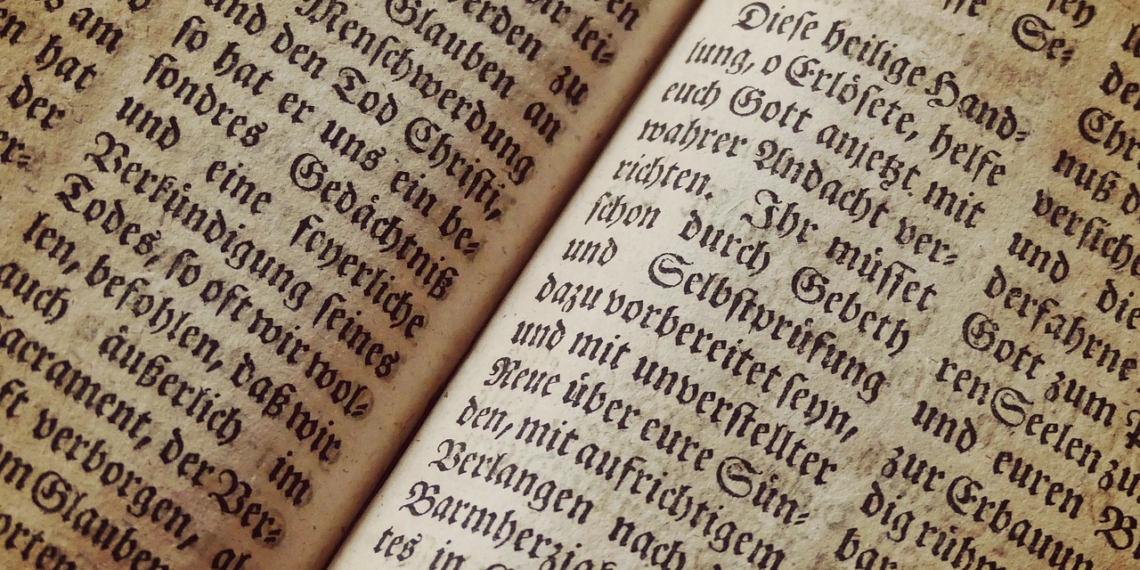 am
hat
der
lei=
zu
Glauben an
Menschwerdung
und den Tod Christi,
so hat er uns ein be=
sondres Gedächtniß
und eine feyerliche
Verkündigung seines
Todes, so oft wir wol=
len, befohlen, daß wir
auch äußerlich im
Sacrament, der Ver=
verborgen,
Glauben
Diese heilige Hand=
lung, o Erlösete, helfe
euch Gott anjetzt mit
wahrer Andacht ver=
richten. Ihr müsset
schon durch Gebeth
und Selbstprüfung
dazu vorbereitet seyn,
und mit unverstellter
Reue über eure Sün=
den, mit aufrichtigem
Verlangen nach
Barmherzig
tes in
Se=
nuß
und die
derfahrne
Gott zum
ren Seelen zu
und euren
zur Erbauun
dig rühm
bar